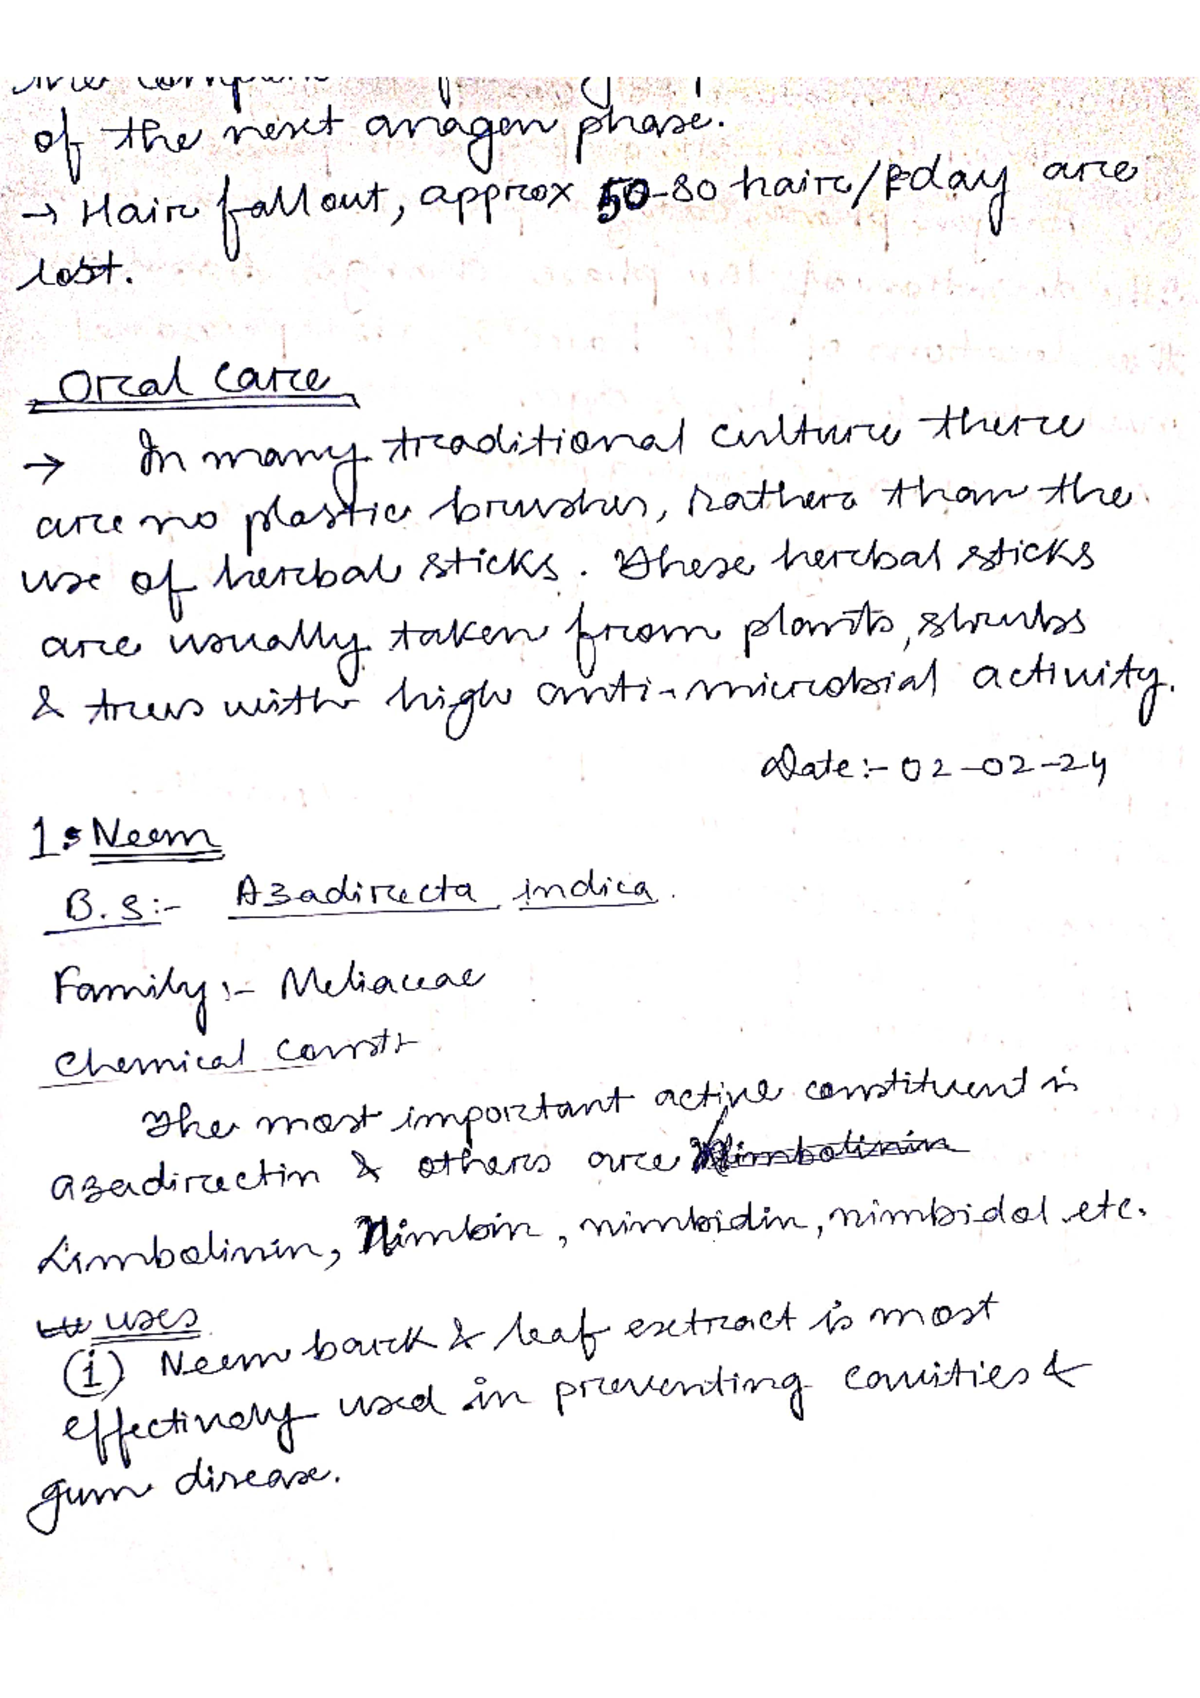 of the next anagen phase.
→ Hair fall out, approx 50-80 hair/day are
lost.
Oral Care
→ In many traditional culture there
are no plastic brushes, rather than the
use of herbal sticks. These herbal sticks
are usually taken from plants, shrubs
& trees with high anti-microbial activity.
Date:- 02-02-24
1. Neem
B.S:- Azadirecta indica.
Family:- Meliaceae
Chemical Const:-
The most important active constituent is
azadirectin & others are Nimbolinin
Limbolinin, Nimbin, nimbidin, nimbidol etc.
uses
(i) Neem bark & leaf extract is most
effectively used in preventing cavities &
gum disease.